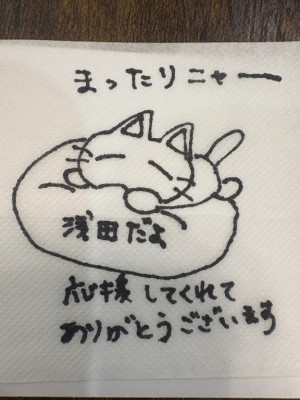 まったりニャー
浅田だよ
応援してくれて
ありがとうございます